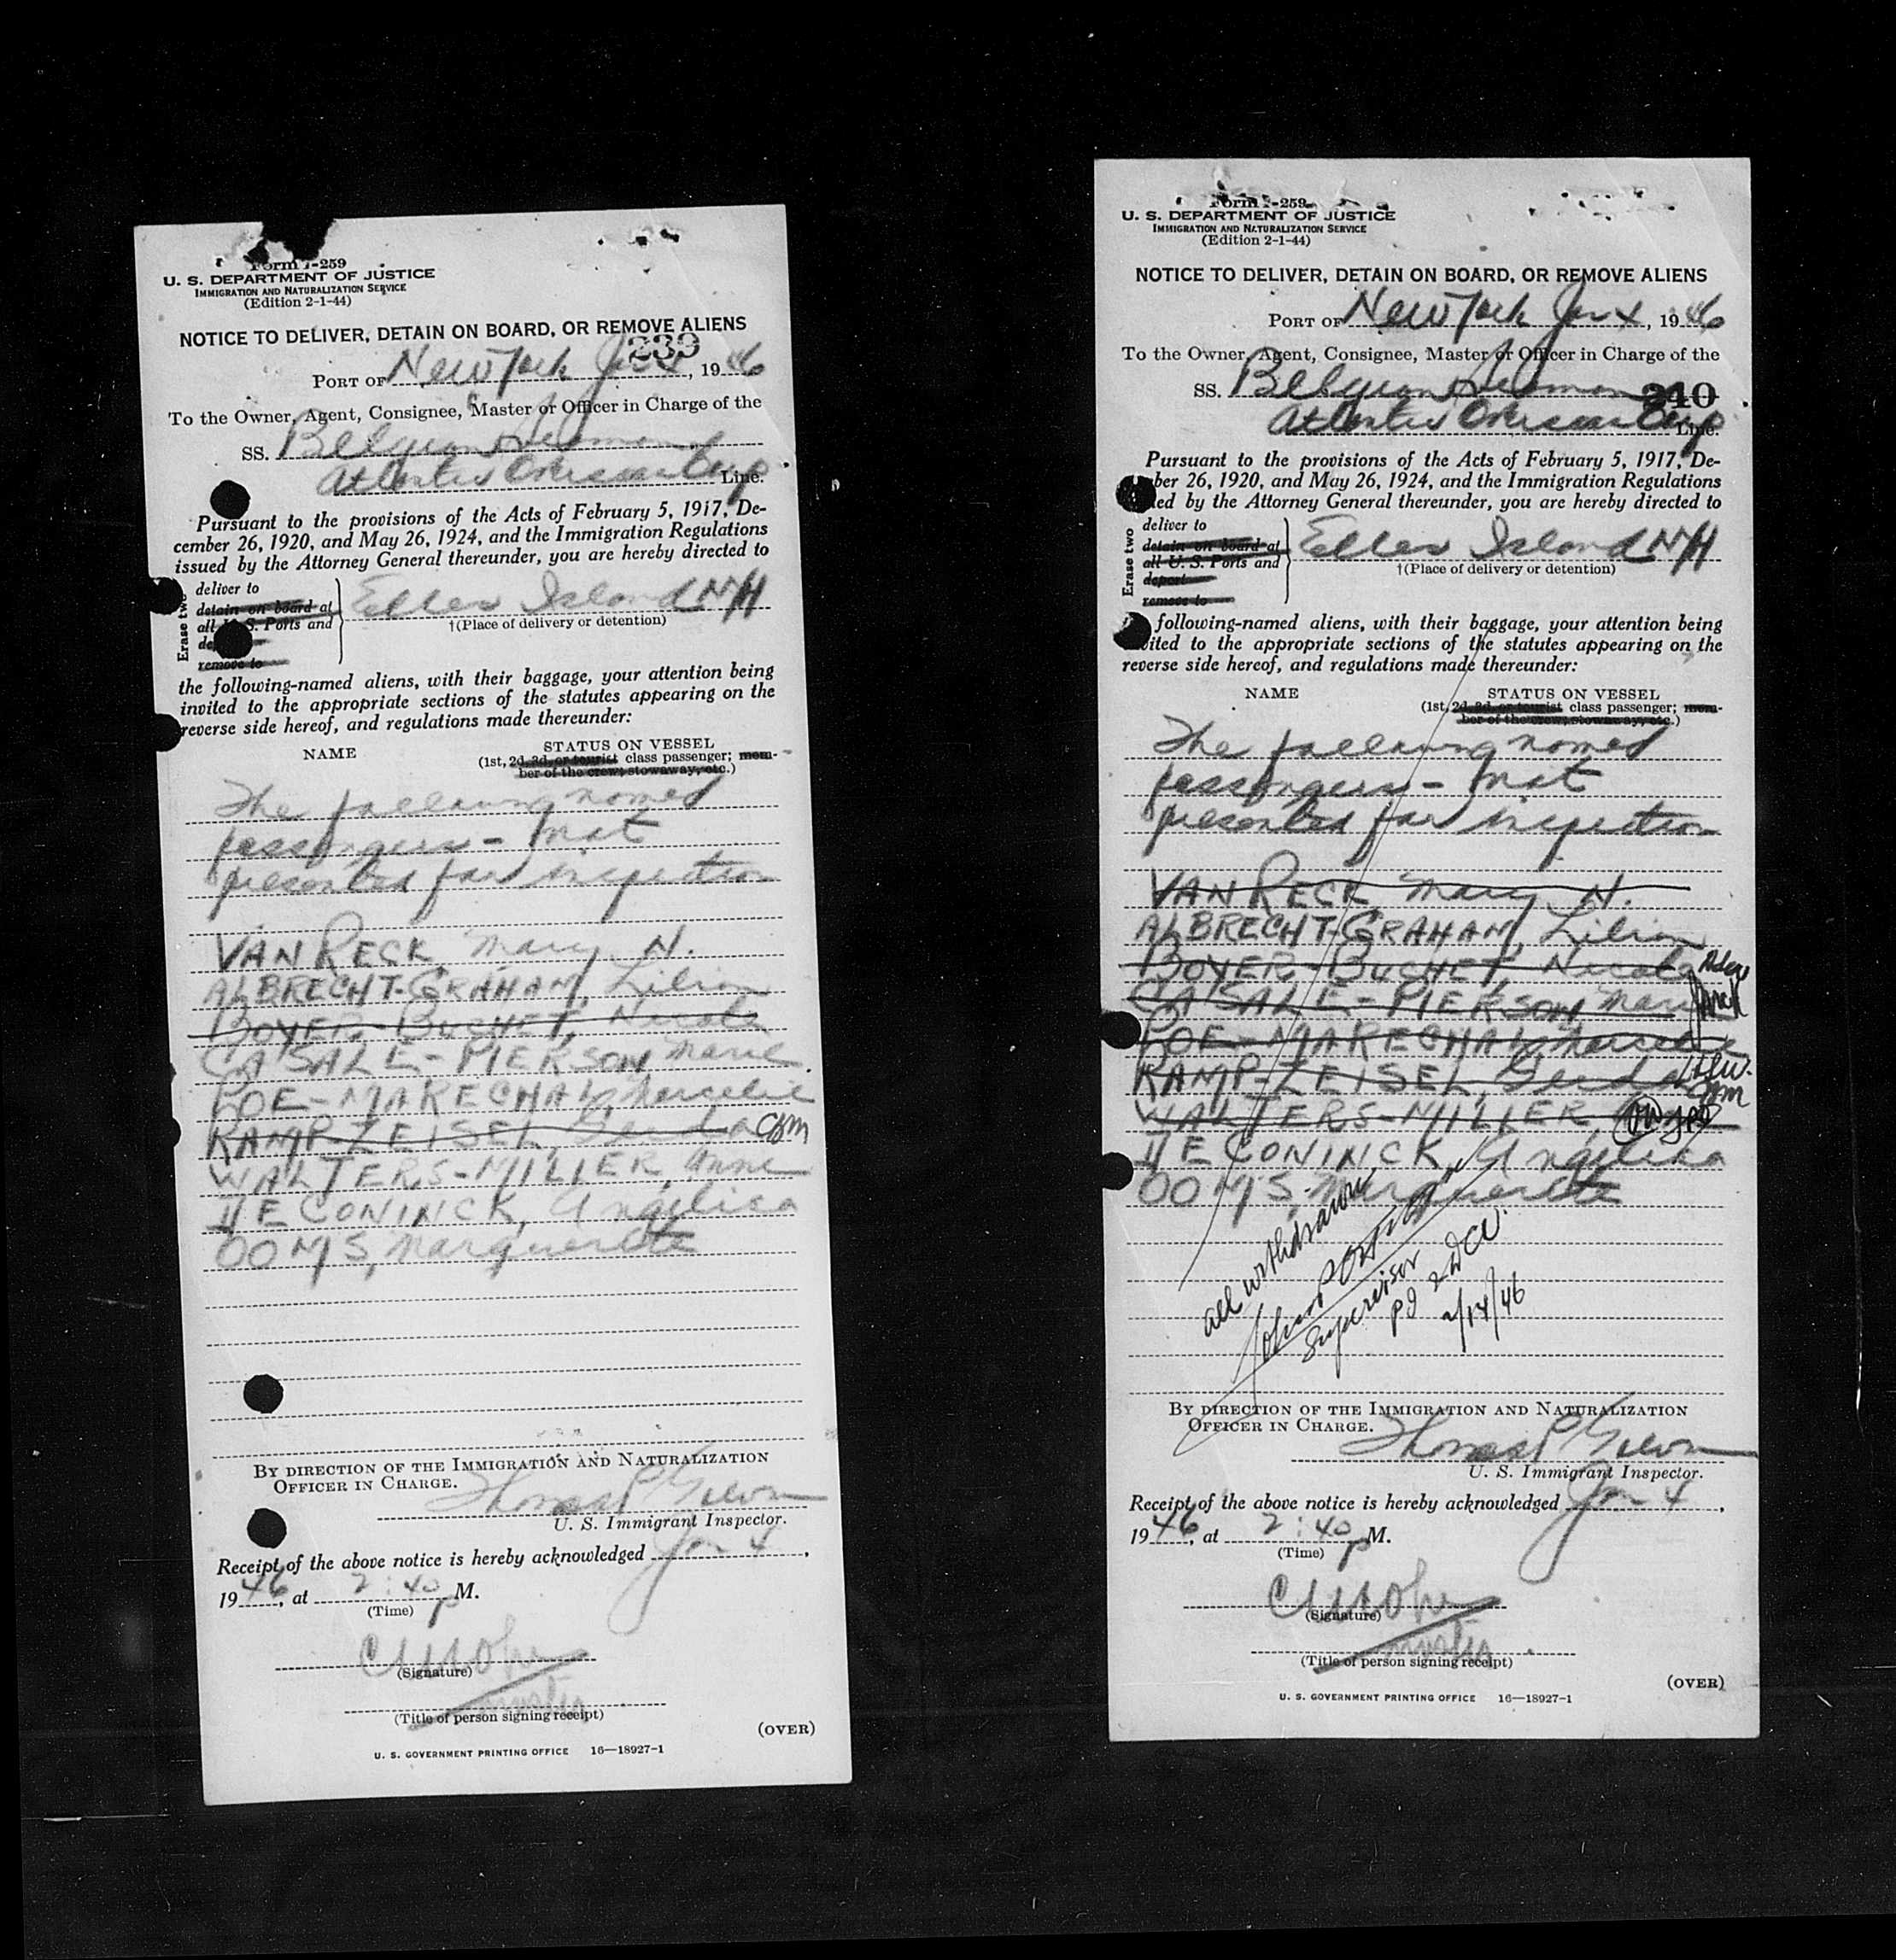 Form I-259
U. S. DEPARTMENT OF JUSTICE
IMMIGRATION AND NATURALIZATION SERVICE
(Edition 2-1-44)
NOTICE TO DELIVER, DETAIN ON BOARD, OR REMOVE ALIENS
239
PORT OF New York Jan 4, 1946
To the Owner, Agent, Consignee, Master or Officer in Charge of the
SS. Belgian Seaman
Atlantic Overseas Corp Line.
Pursuant to the provisions of the Acts of February 5, 1917, De-
cember 26, 1920, and May 26, 1924, and the Immigration Regulations
issued by the Attorney General thereunder, you are hereby directed to
Erase two
deliver to
detain on board at
all U. S. Ports and
remove to
Ellis Island NYH
†(Place of delivery or detention)
the following-named aliens, with their baggage, your attention being
invited to the appropriate sections of the statutes appearing on the
reverse side hereof, and regulations made thereunder:
NAME STATUS ON VESSEL
(1st, 2d, 3d, or tourist class passenger; mem-
ber of the crew; stowaway, etc.)
The following named
passengers - not
presented for inspection
VAN RECK, Mary N.
ALBRECHT-GRAHAM, Lilian
BOYER-BUCHET, Nicole
CASALE-PIERSON, Marie
POE-MARECHAL, Marcelle
KAMP-ZEISEL, Gerda
WALTERS-MILLER, Anne
DE CONINCK, Angelica
OOMS, Marguerite
BY DIRECTION OF THE IMMIGRATION AND NATURALIZATION
OFFICER IN CHARGE.
Thomas P
U. S. Immigrant Inspector.
Receipt of the above notice is hereby acknowledged Jan 4,
1946, at 2:40 P M.
(Time)
(Signature)
Master
(Title of person signing receipt)
(OVER)
U. S. GOVERNMENT PRINTING OFFICE 16—18927-1
Form I-259
U. S. DEPARTMENT OF JUSTICE
IMMIGRATION AND NATURALIZATION SERVICE
(Edition 2-1-44)
NOTICE TO DELIVER, DETAIN ON BOARD, OR REMOVE ALIENS
PORT OF New York Jan 4, 1946
To the Owner, Agent, Consignee, Master or Officer in Charge of the
SS. Belgian Seaman
240
Atlantic Overseas Corp Line.
Pursuant to the provisions of the Acts of February 5, 1917, De-
cember 26, 1920, and May 26, 1924, and the Immigration Regulations
issued by the Attorney General thereunder, you are hereby directed to
Erase two
deliver to
detain on board at
all U. S. Ports and
deport
remove to
Ellis Island NYH
†(Place of delivery or detention)
following-named aliens, with their baggage, your attention being
invited to the appropriate sections of the statutes appearing on the
reverse side hereof, and regulations made thereunder:
NAME STATUS ON VESSEL
(1st, 2d, 3d, or tourist class passenger; mem-
ber of the crew; stowaway, etc.)
The following named
passengers - not
presented for inspection
VAN RECK, Mary N.
ALBRECHT-GRAHAM, Lilian
BOYER-BUCHET, Nicole
CASALE-PIERSON, Marie
POE-MARECHAL, Marcelle
KAMP-ZEISEL, Gerda
WALTERS-MILLER, Anne
DE CONINCK, Angelica
OOMS, Marguerite
all withdrawn
Supervisor
2/14/46
BY DIRECTION OF THE IMMIGRATION AND NATURALIZATION
OFFICER IN CHARGE.
Thomas P
U. S. Immigrant Inspector.
Receipt of the above notice is hereby acknowledged Jan 4,
1946, at 2:40 P M.
(Time)
(Signature)
Master
(Title of person signing receipt)
(OVER)
U. S. GOVERNMENT PRINTING OFFICE 16—18927-1